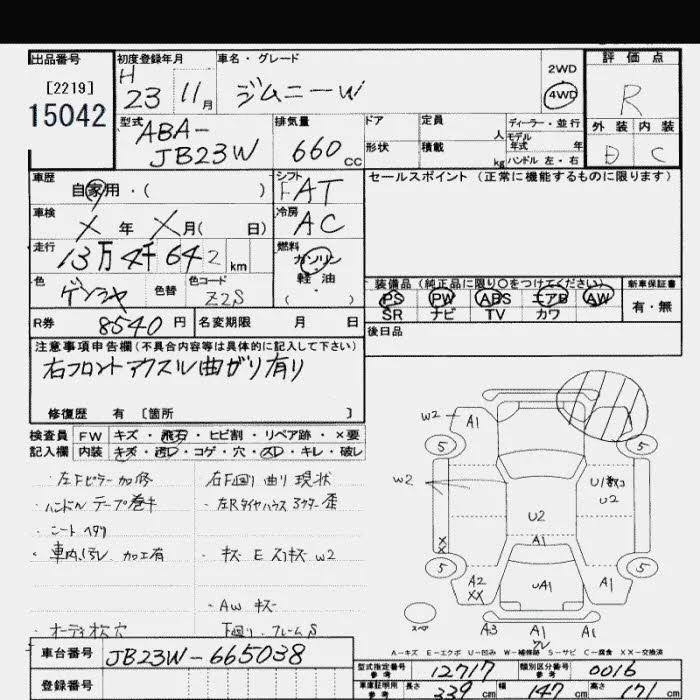 出品番号
[2219]
15042
初度登録年月
H 23 11月
車名・グレード
ジムニーW
2WD
4WD
評価点
R
外装 内装
D C
型式
ABA-
JB23W
排気量
660 CC
ドア
形状
定員 人
積載 kg
ディーラー・並行
モデル年式 年
ハンドル 左・右
車歴
自家用・( )
シフト
FAT
セールスポイント (正常に機能するものに限ります)
車検
X年 X月( 日)
冷房
AC
走行
13万4千642 km
燃料
ガソリン
軽・油
( )
色
色替
色コード
Z2S
装備品 (純正品に限り○をつけてください)
PS PW ABS エアB AW
SR ナビ TV カワ
新車保証書
有・無
R券 8540円
名変期限 月 日
後日品
注意事項申告欄 (不具合内容等は具体的に記入して下さい)
右フロントアクスル曲がり有り
修復歴 有 [箇所 ]
検査員記入欄
FW キズ・飛石・ヒビ割・リペア跡・×要
内装 キズ・汚D・コゲ・穴・スD・キレ・破レ
・左Fピラー加修
・ハンドル テープ巻キ
・シートヘタリ
・車内汚レ 加工有
・オーディオ欠 穴
右F回り曲り現状
・左Rタイヤハウス アクター歪
・キズ E スリキズ W2
・AW キズ
下回り・フレームS
W2
A1
5
5
W2
U1数コ
U2
U2
A1
XX
5
5
A2
XX
UA1
A1
スペア
A3
A1
ワレ
A1
A-キズ E-エクボ U-凹み W-補修跡 S-サビ C-腐食 XX-交換済
車台番号
JB23W-665038
登録番号
型式指定番号 参考
12717
類別区分番号 参考
0016
車庫証明用 参考
長さ 339 cm
幅 147 cm
高さ 171 cm